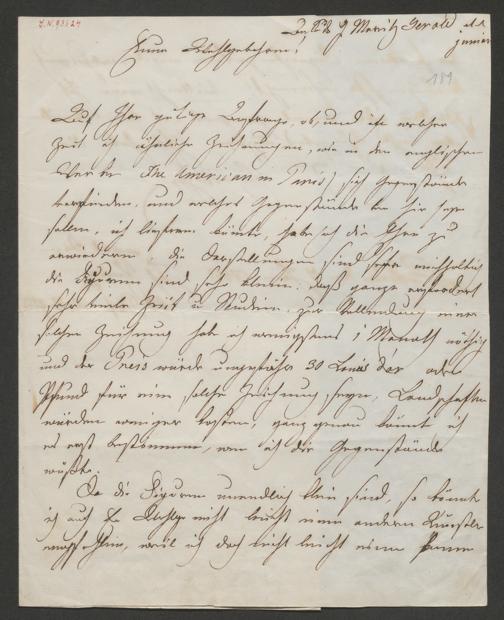 J.N. 93624
J Moritz Gerold
junior
Euer Wohlgeboren!
189
Auf Ihre gütige Anfrage, ob, und in welcher
Zeit ich ähnliche Zeichnungen, wie in den englischen
Werke The American in Paris) sich Gegenstände
befinden, und welches Gegenstände
sollen, ich liefern könnte, habe ich die Ehre zu
erwiedern: die Darstellungen sind sehr reichhaltig
die Figuren sind sehr klein, das ganze erfordert
sehr viele Zeit u Studien. zur Vollendung einer
solchen Zeichnung habe ich wenigstens 1 Monath nöthig
und der Preis würde ungefähr 30 Louis d'or oder
Pfund für eine solche Zeichnung seyn, Landschaften
würden weniger kosten; ganz genau könnt ich
es erst bestimmen, wen ich die Gegenstände
wüßte.
Da die Figuren unendlich klein sind, so könnte
ich auch nicht leicht einen andern Künstler
empfehlen, weil ich doch nicht leicht einen